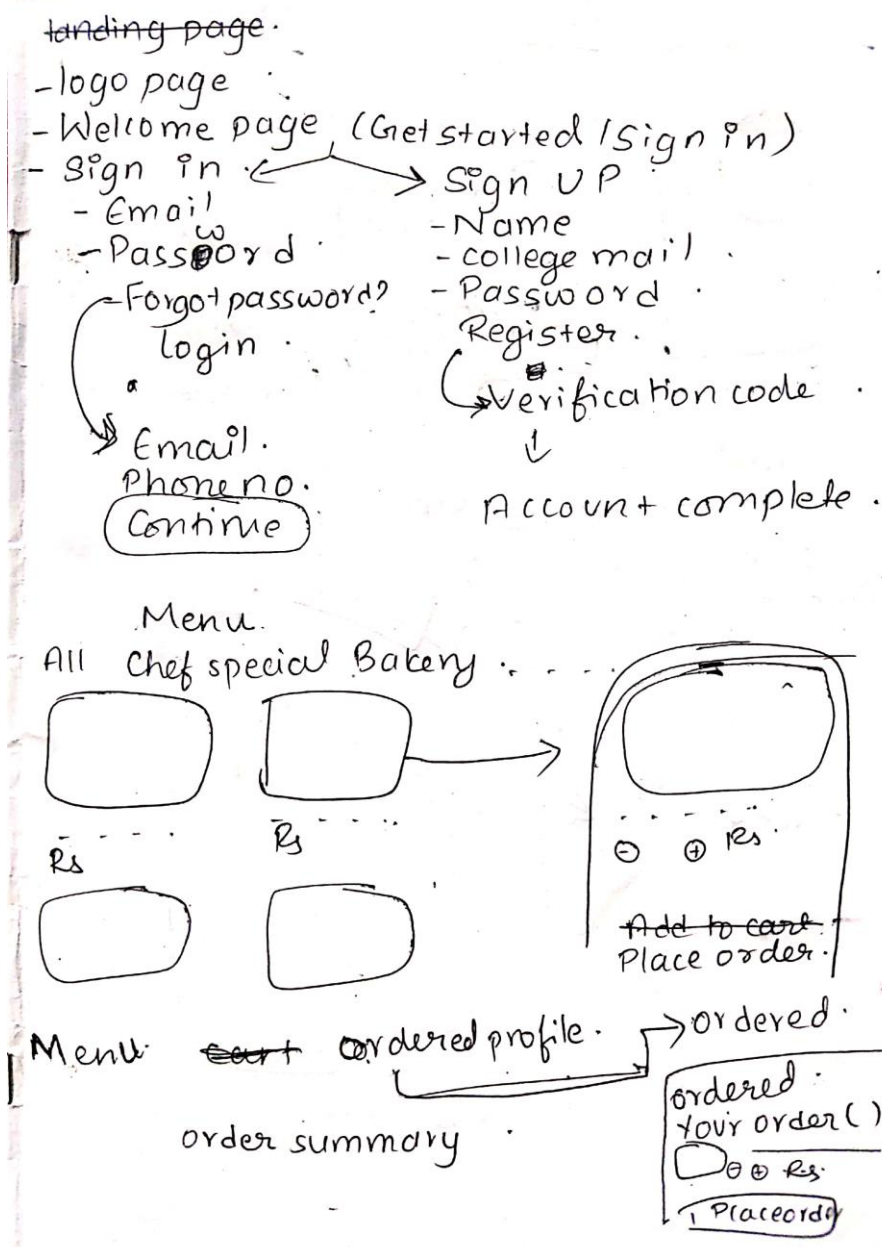 landing page.
- logo page
- Welcome page (Get started / Sign in)
- Sign in
- Email
- Password
- Forgot password?
Login
Email.
Phone no.
Continue
Sign UP
- Name
- college mail
- Password
Register
Verification code
Account complete.
Menu.
All Chef special Bakery . . . .
Rs
Rs
⊖ ⊕ Rs.
Add to cart
Place order.
Menu cart ordered profile.
ordered.
order summary
ordered.
Your order ( )
⊖ ⊕ Rs.
Place order